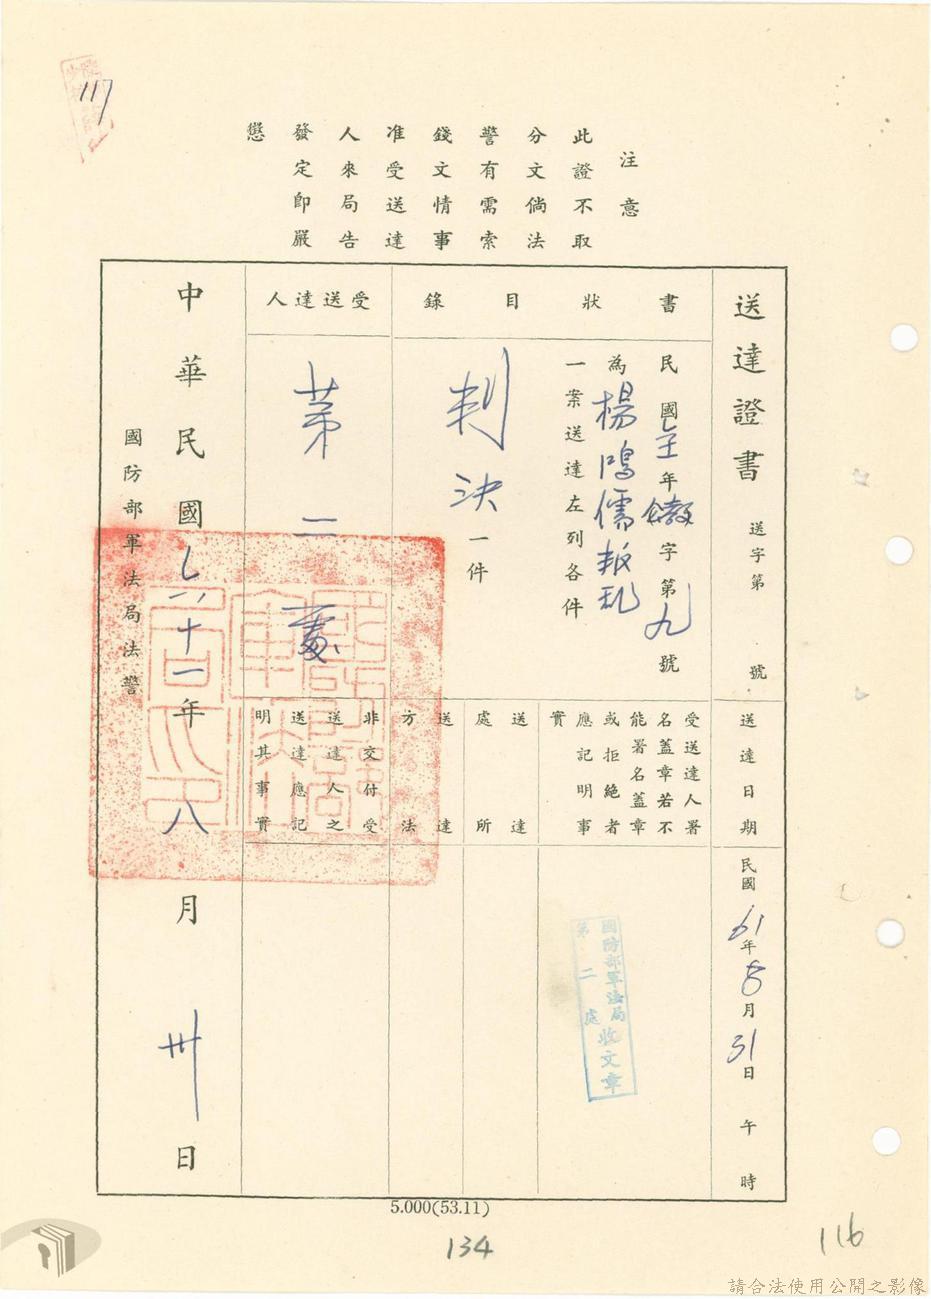 117
注意
此證不取
分文倘法
警有需索
錢文情事
准受送達
人來局告
發定即嚴
懲
送達證書
送字第 號
書狀目錄
民國 年 字第九號
為楊鴻儒叛亂
一案送達左列各件
判決一件
受送達人
第二處
送達日期
民國61年8月31日 午 時
受送達人署
名蓋章若不
能署名蓋章
或拒絕者
應記明事
實
國防部軍法局
第二處
收文章
送達
處所
送達
方法
非交付受
送達人之
送達應記
明其事實
中華民國六十一年八月卅日
國防部軍法局法警
5.000(53.11)
134
116
請合法使用公開之影像